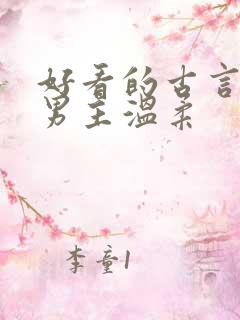 好看的古言
男主温柔
李童1